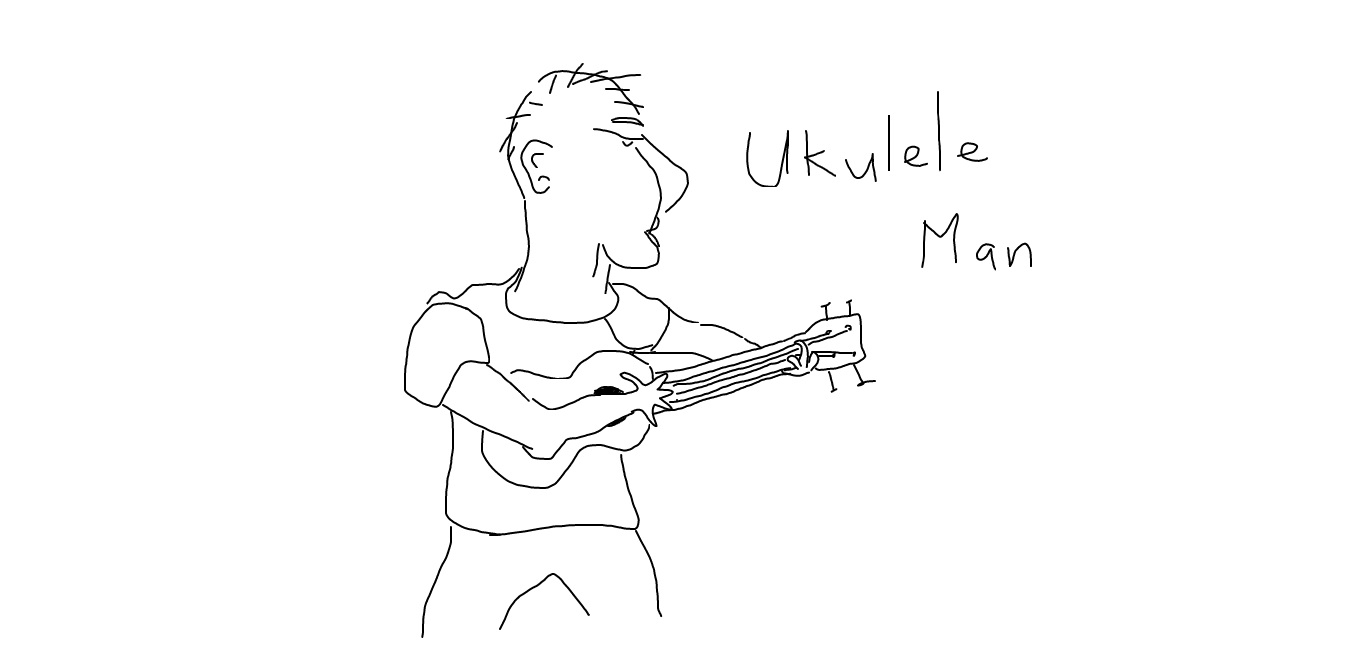 Ukulele
Man